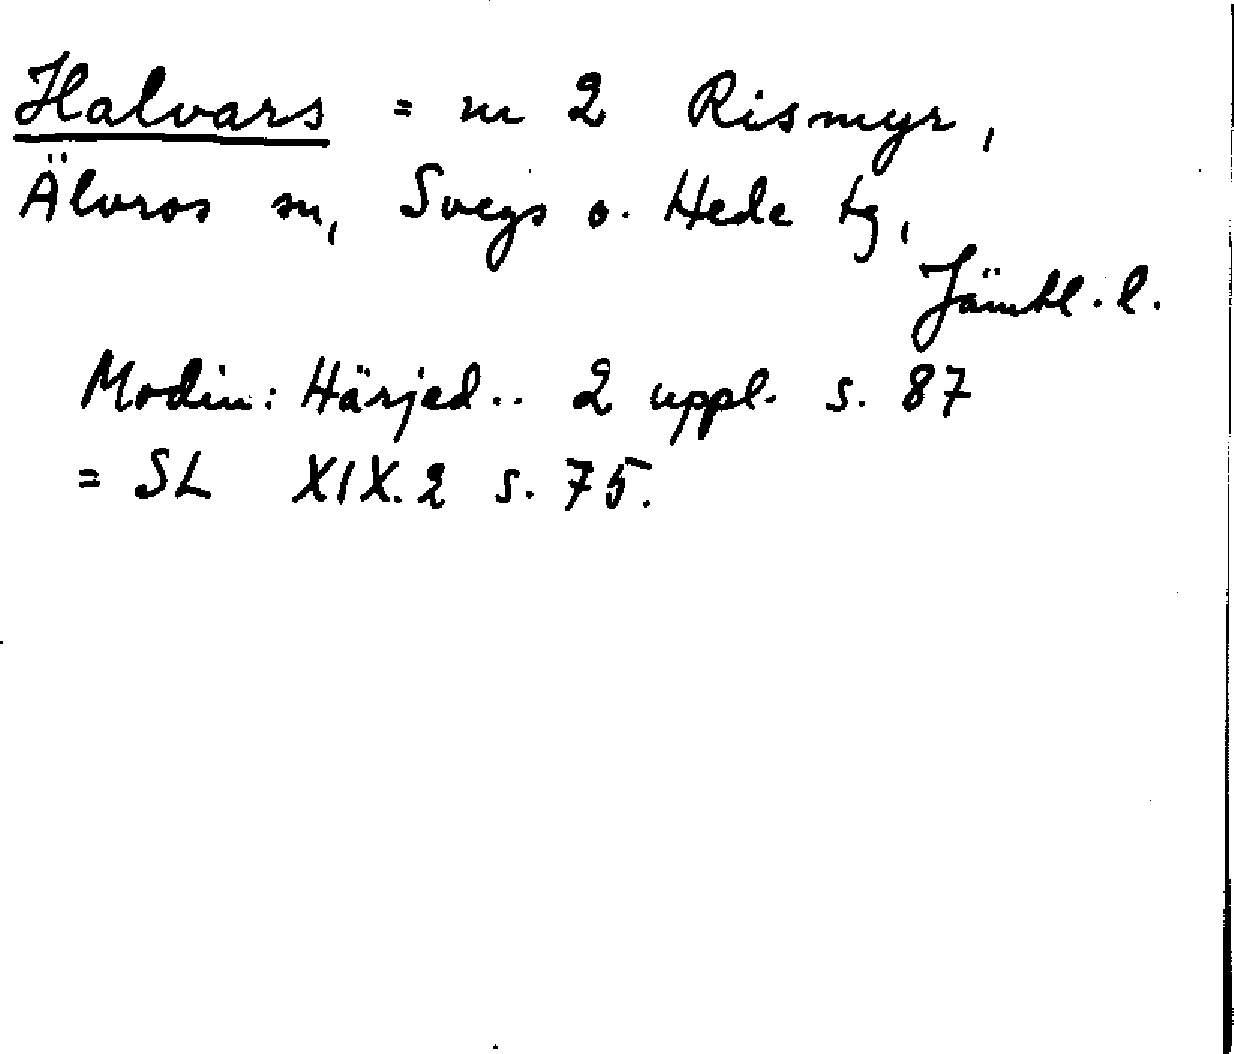 Halvars = nr 2 Rismyr,
Älvros sn, Svegs o. Hede tg,
Jämtl. l.
Modin: Härjed.. 2 uppl. s. 87
= SL XIX.2 s. 75.